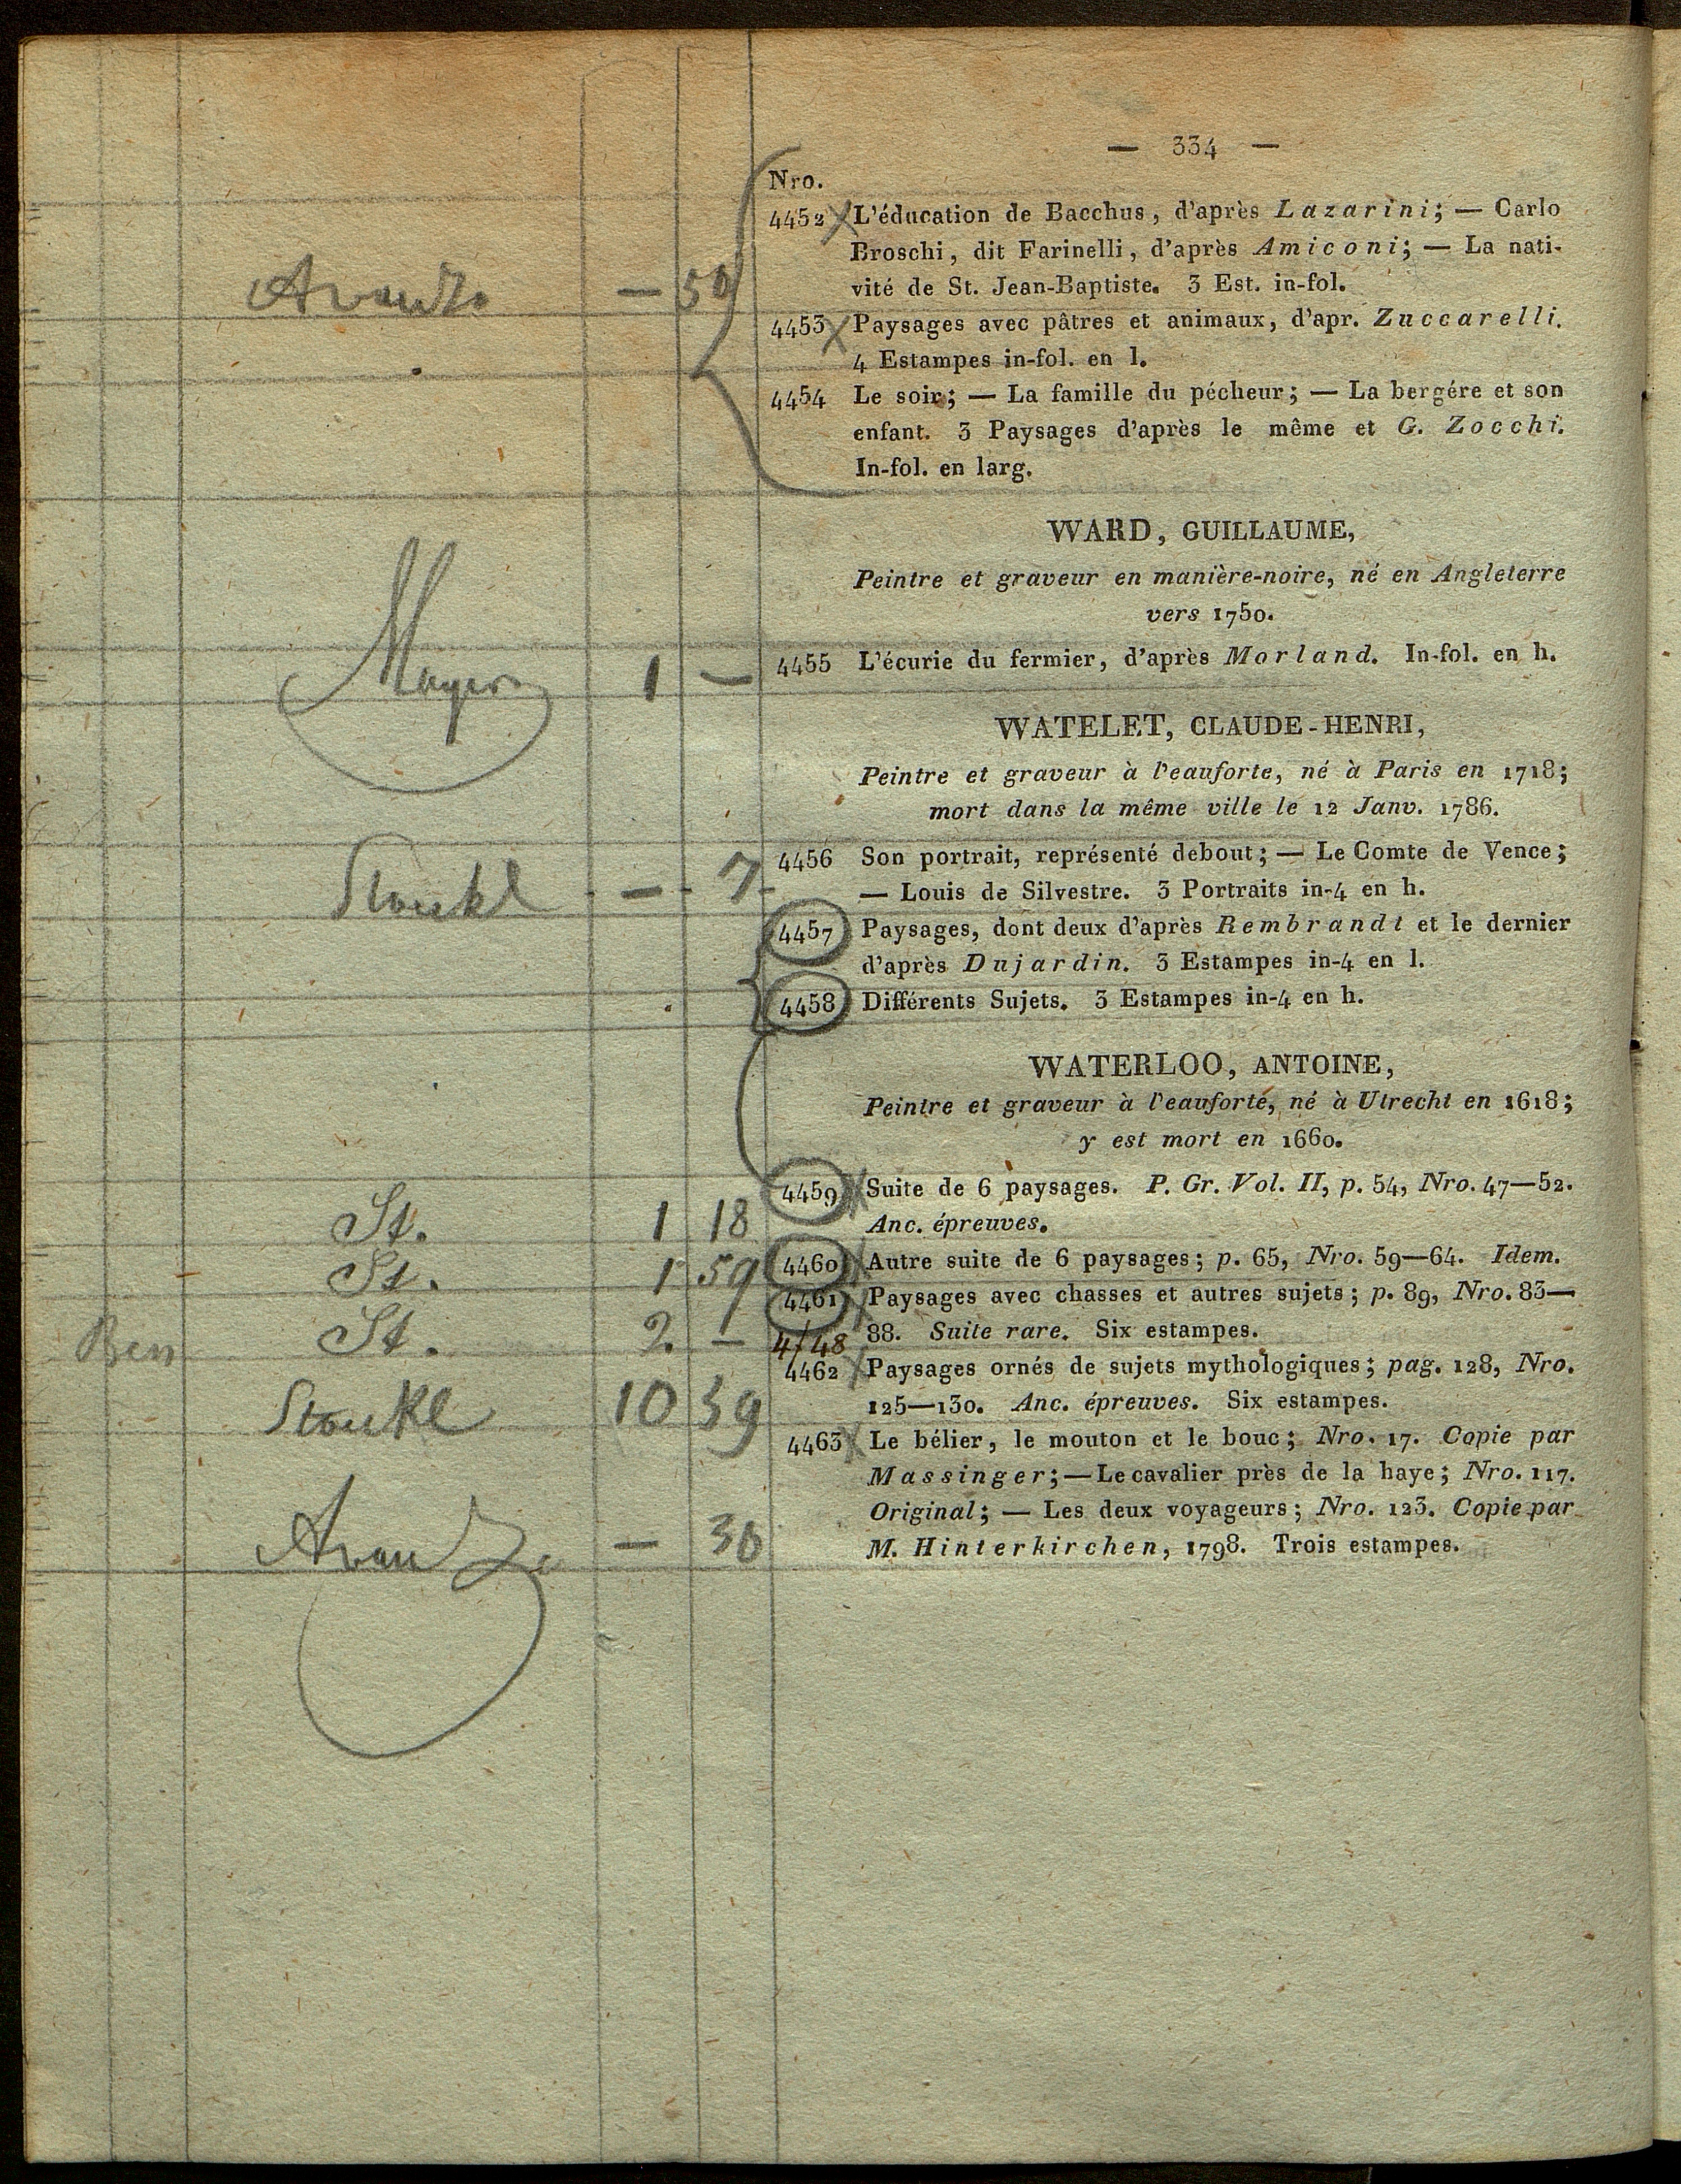 — 334 —
Nro.
4452 L'éducation de Bacchus, d'après Lazarini; — Carlo
Broschi, dit Farinelli, d'après Amiconi; — La nati-
vité de St. Jean-Baptiste. 3 Est. in-fol.
— 50
4453 Paysages avec pâtres et animaux, d'apr. Zuccarelli.
4 Estampes in-fol. en l.
4454 Le soir; — La famille du pécheur; — La bergére et son
enfant. 3 Paysages d'après le même et G. Zocchi.
In-fol. en larg.
WARD, GUILLAUME,
Peintre et graveur en manière-noire, né en Angleterre
vers 1750.
Mayer 1 — 4455 L'écurie du fermier, d'après Morland. In-fol. en h.
WATELET, CLAUDE-HENRI,
Peintre et graveur à l'eauforte, né à Paris en 1718;
mort dans la même ville le 12 Janv. 1786.
Stoukl — 7 4456 Son portrait, représenté debout; — Le Comte de Vence;
— Louis de Silvestre. 3 Portraits in-4 en h.
4457 Paysages, dont deux d'après Rembrandt et le dernier
d'après Dujardin. 3 Estampes in-4 en l.
4458 Différents Sujets. 3 Estampes in-4 en h.
WATERLOO, ANTOINE,
Peintre et graveur à l'eauforté, né à Utrecht en 1618;
y est mort en 1660.
St. 1 18 4459 Suite de 6 paysages. P. Gr. Vol. II, p. 54, Nro. 47—52.
Anc. épreuves.
St. 1 59 4460 Autre suite de 6 paysages; p. 65, Nro. 59—64. Idem.
St. 2 — 4461 Paysages avec chasses et autres sujets; p. 89, Nro. 83—
4/48 88. Suite rare. Six estampes.
Stoukl 10 39 4462 Paysages ornés de sujets mythologiques; pag. 128, Nro.
125—130. Anc. épreuves. Six estampes.
4463 Le bélier, le mouton et le bouc; Nro. 17. Copie par
Massinger; — Le cavalier près de la haye; Nro. 117.
Original; — Les deux voyageurs; Nro. 123. Copie par
— 30 M. Hinterkirchen, 1798. Trois estampes.